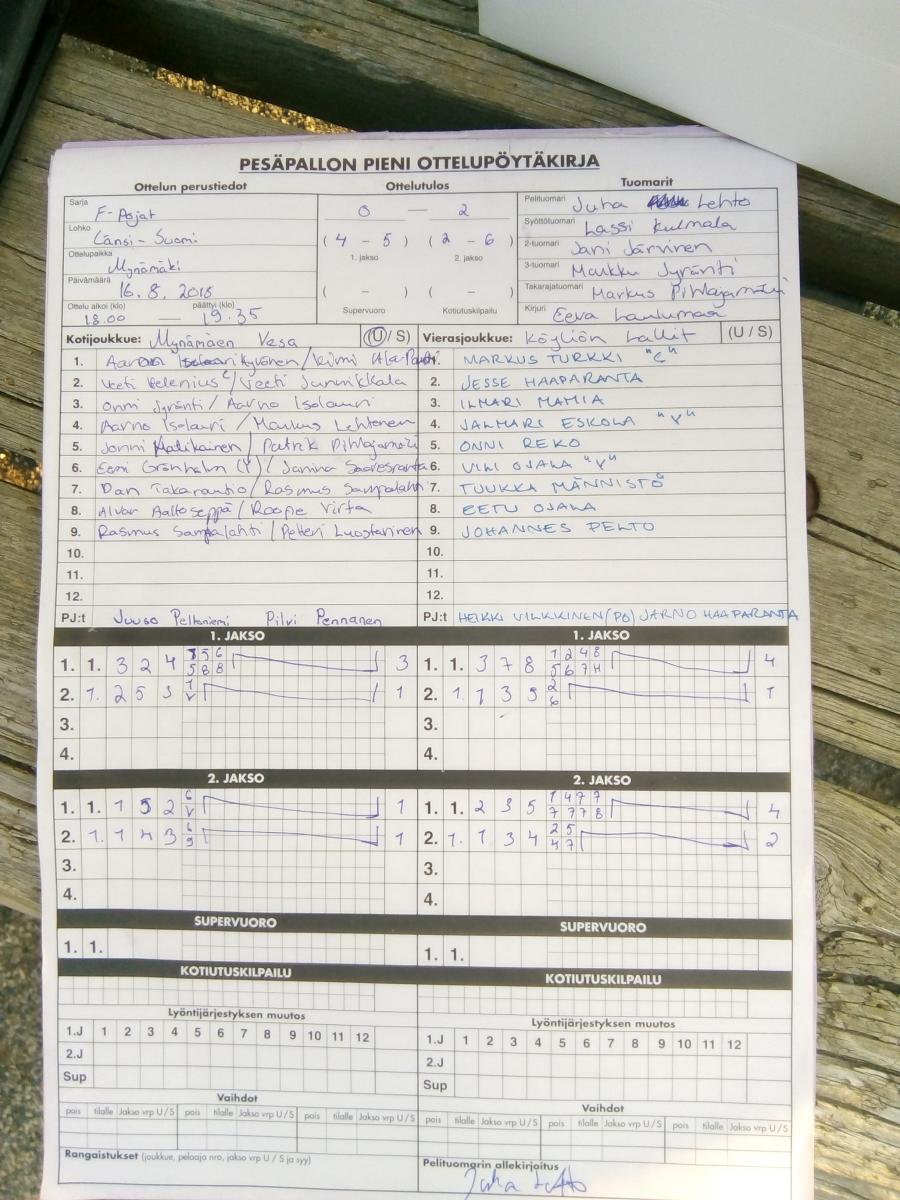 PESÄPALLON PIENI OTTELUPÖYTÄKIRJA
Ottelun perustiedot Ottelutulos Tuomarit
Sarja F-Pojat
Lohko Länsi-Suomi
Ottelupaikka Mynämäki
Päivämäärä 16.8.2018
Ottelu alkoi (klo) päättyi (klo)
18.00 — 19.35
0 — 2
(4 - 5) (2 - 6)
1. jakso 2. jakso
( - ) ( - )
Supervuoro Kotiutuskilpailu
Pelituomari Juha Lehto
Syöttötuomari Lassi Kulmala
2-tuomari Jani Järvinen
3-tuomari Markku Jyränti
Takarajatuomari Markus Pihlajamäki
Kirjuri Eeva
Kotijoukkue: Mynämäen Vesa (U / S)
1. Kyrönen / Kimi
2. Veeti Helenius / Veeti Junnikkala
3. Onni Jyränti / Aarno Isolauri
4. Aarno Isolauri / Markus Lehtonen
5. Jonni Matikainen / Patrik Pihlajamäki
6. Eemi Grönholm (Y) / Janina Saaresranta
7. Dan Takarautio / Rasmus Sampalahti
8. Alvar Aaltoseppä / Roope Virta
9. Rasmus Sampalahti / Petteri Luostarinen
10.
11.
12.
PJ:t Juuso Peltoniemi Pilvi Pennanen
Vierasjoukkue: Köyliön Lallit (U / S)
1. MARKUS TURKKI "C"
2. JESSE HAAPARANTA
3. ILMARI MAMIA
4. JALMARI ESKOLA "V"
5. ONNI REKO
6. VILI OJALA "V"
7. TUUKKA MÄNNISTÖ
8. EETU OJALA
9. JOHANNES PELTO
10.
11.
12.
PJ:t HEIKKI VILKKINEN (PO) JARNO HAAPARANTA
1. JAKSO
1. 1. 3 2 4 5 6 5 8 8 3
2. 1. 2 5 3 1 V 1
3.
4.
1. JAKSO
1. 1. 3 7 8 1 2 4 8 5 6 7 H 4
2. 1. 1 3 5 2 6 1
3.
4.
2. JAKSO
1. 1. 1 5 2 6 V 1
2. 1. 1 4 3 6 9 1
3.
4.
2. JAKSO
1. 1. 2 3 5 1 4 7 7 7 7 7 8 4
2. 1. 1 3 4 2 5 4 7 2
3.
4.
SUPERVUORO SUPERVUORO
1. 1. 1. 1.
KOTIUTUSKILPAILU KOTIUTUSKILPAILU
Lyöntijärjestyksen muutos Lyöntijärjestyksen muutos
1.J 1 2 3 4 5 6 7 8 9 10 11 12 1.J 1 2 3 4 5 6 7 8 9 10 11 12
2.J 2.J
Sup Sup
Vaihdot Vaihdot
pois tilalle Jakso vrp U/S pois tilalle Jakso vrp U/S pois tilalle Jakso vrp U/S pois tilalle Jakso vrp U/S pois tilalle Jakso vrp U/S pois tilalle Jakso vrp U/S
Rangaistukset (joukkue, pelaaja nro, jakso vrp U / S ja syy)
Pelituomarin allekirjoitus
Juha Lehto